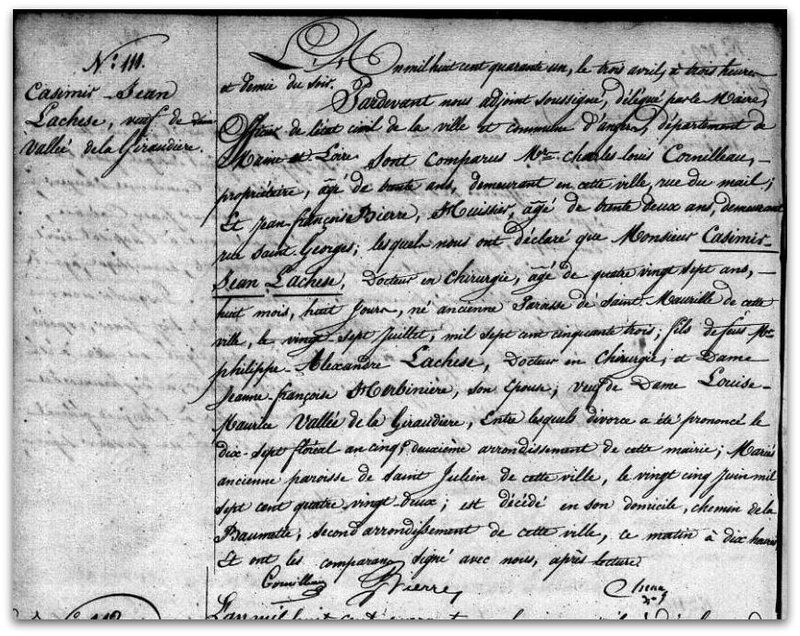 N.º 111.
Casimir Jean
Lachese, veuf de dme
Vallée de la Giraudière.
L'An mil huit cent quarante un, le trois avril, à trois heures
et demie du soir. Pardevant nous adjoint soussigné, délégué par le Maire,
Officier de l'état civil de la ville et commune d'angers, département de
Maine et Loire sont comparus Mrs charles louis Cornilleau,
propriétaire, âgé de trente ans, demeurant en cette ville, rue du mail;
Et jean-françois Pierre, Huissier, âgé de trente deux ans, demeurant
rue Saint Georges; lesquels nous ont déclaré que Monsieur Casimir-
Jean Lachese, Docteur en Chirurgie, âgé de quatre vingt sept ans,
huit mois, huit jours, né ancienne Paroisse de Saint-Maurille de cette
ville, le vingt-sept juillet, mil sept cent cinquante trois; fils de feus Mr
philippe-Alexandre Lachese, Docteur en Chirurgie, et Dame
jeanne-françoise Morbinière, son Epouse; veuf de Dame Louise-
Maurice Vallée de la Giraudière, Entre lesquels divorce a été prononcé le
dix-sept floréal an cinq, deuxième arrondissement de cette mairie; Mariés
ancienne paroisse de Saint Julien de cette ville, le vingt cinq juin mil
sept cent quatre vingt deux; est décédé en son domicile, chemin de la
Baumette, second arrondissement de cette ville, ce matin à dix heures
Et ont les comparans signé avec nous, après lecture.
Cornilleau Pierre
L'an mil huit cent quarante un